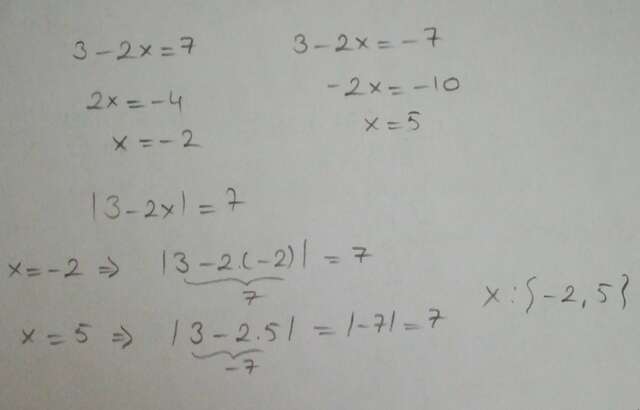 3 - 2x = 7
2x = -4
x = -2
3 - 2x = -7
-2x = -10
x = 5
|3 - 2x| = 7
x = -2 ⇒ |3 - 2.(-2)| = 7
7
x = 5 ⇒ |3 - 2.5| = |-7| = 7
-7
x : {-2, 5}